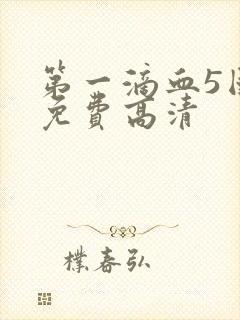 第一滴血5
免费高清
樸春弘